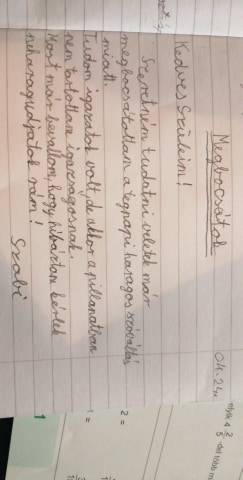 Megbocsátok
04. 24.
Kedves Szüleim!
Szeretném tudatni veletek már
megbocsátottam a tegnapi haragos szóváltás
miatt.
Tudom igazatok volt, de akkor a pillanatban
nem tartottam igazságosnak.
Most már bevallom, hogy hibáztam kérlek
neharagudjatok rám!
Szabi
2 =